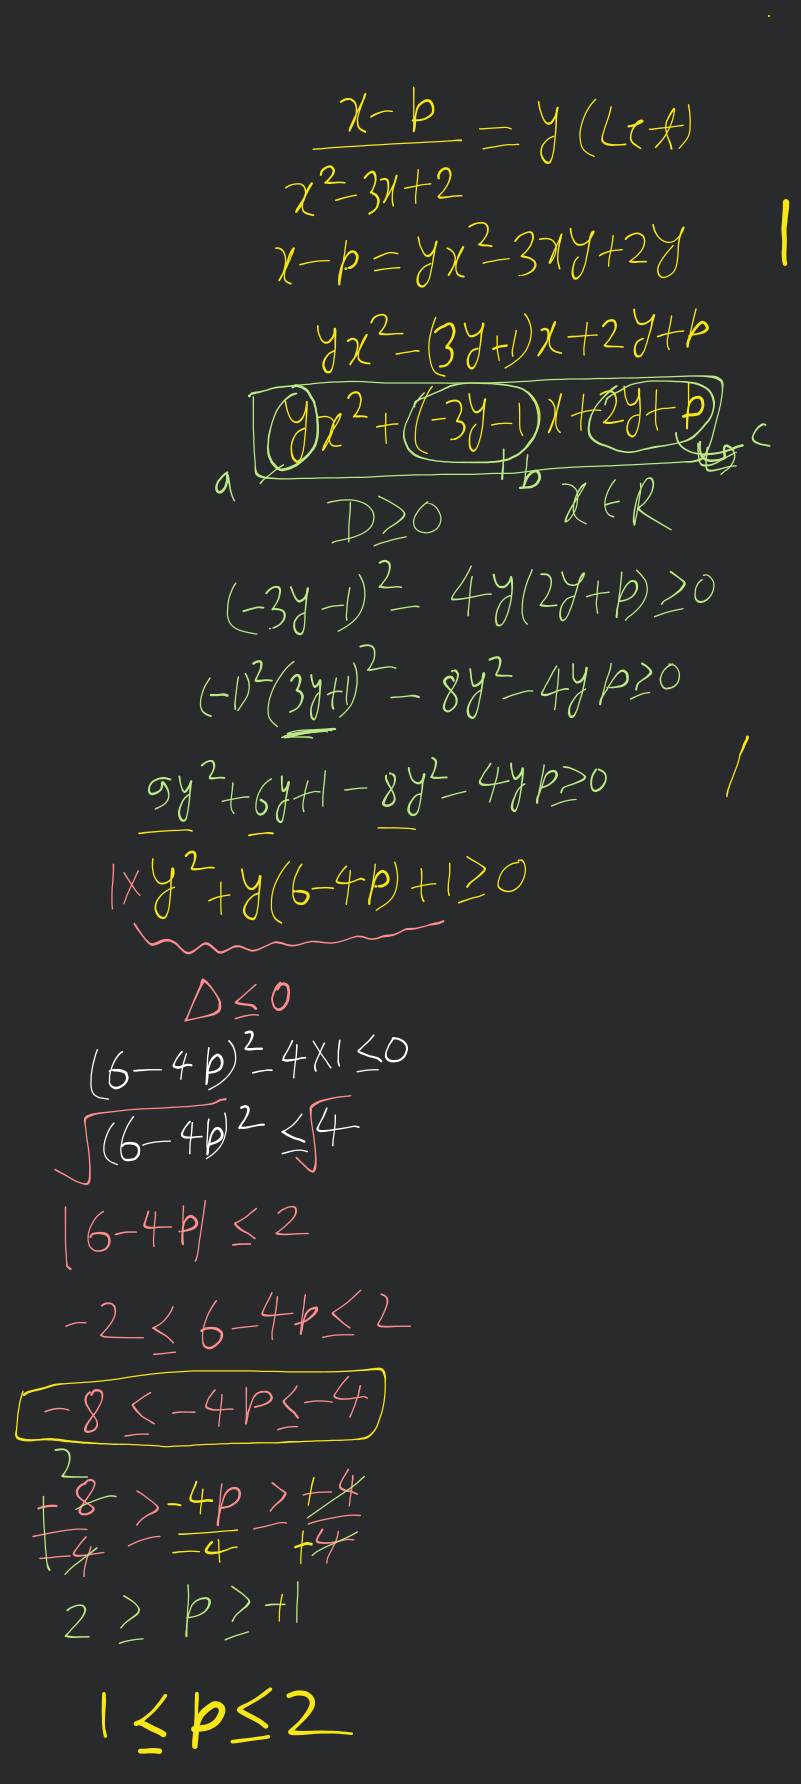 x-p / x²-3x+2 = y (Let)
x-p = yx²-3xy+2y
yx²-(3y+1)x+2y+p
yx²+(-3y-1)x+2y+p
a b c
D≥0 x∈R
(-3y-1)²-4y(2y+p)≥0
(-1)²(3y+1)²-8y²-4yp≥0
9y²+6y+1-8y²-4yp≥0
1×y²+y(6-4p)+1≥0
Δ≤0
(6-4p)²-4×1≤0
√(6-4p)²≤√4
|6-4p|≤2
-2≤6-4p≤2
-8≤-4p≤-4
2
-8/-4 ≥ -4p/-4 ≥ +4/+4
2≥p≥+1
1≤p≤2